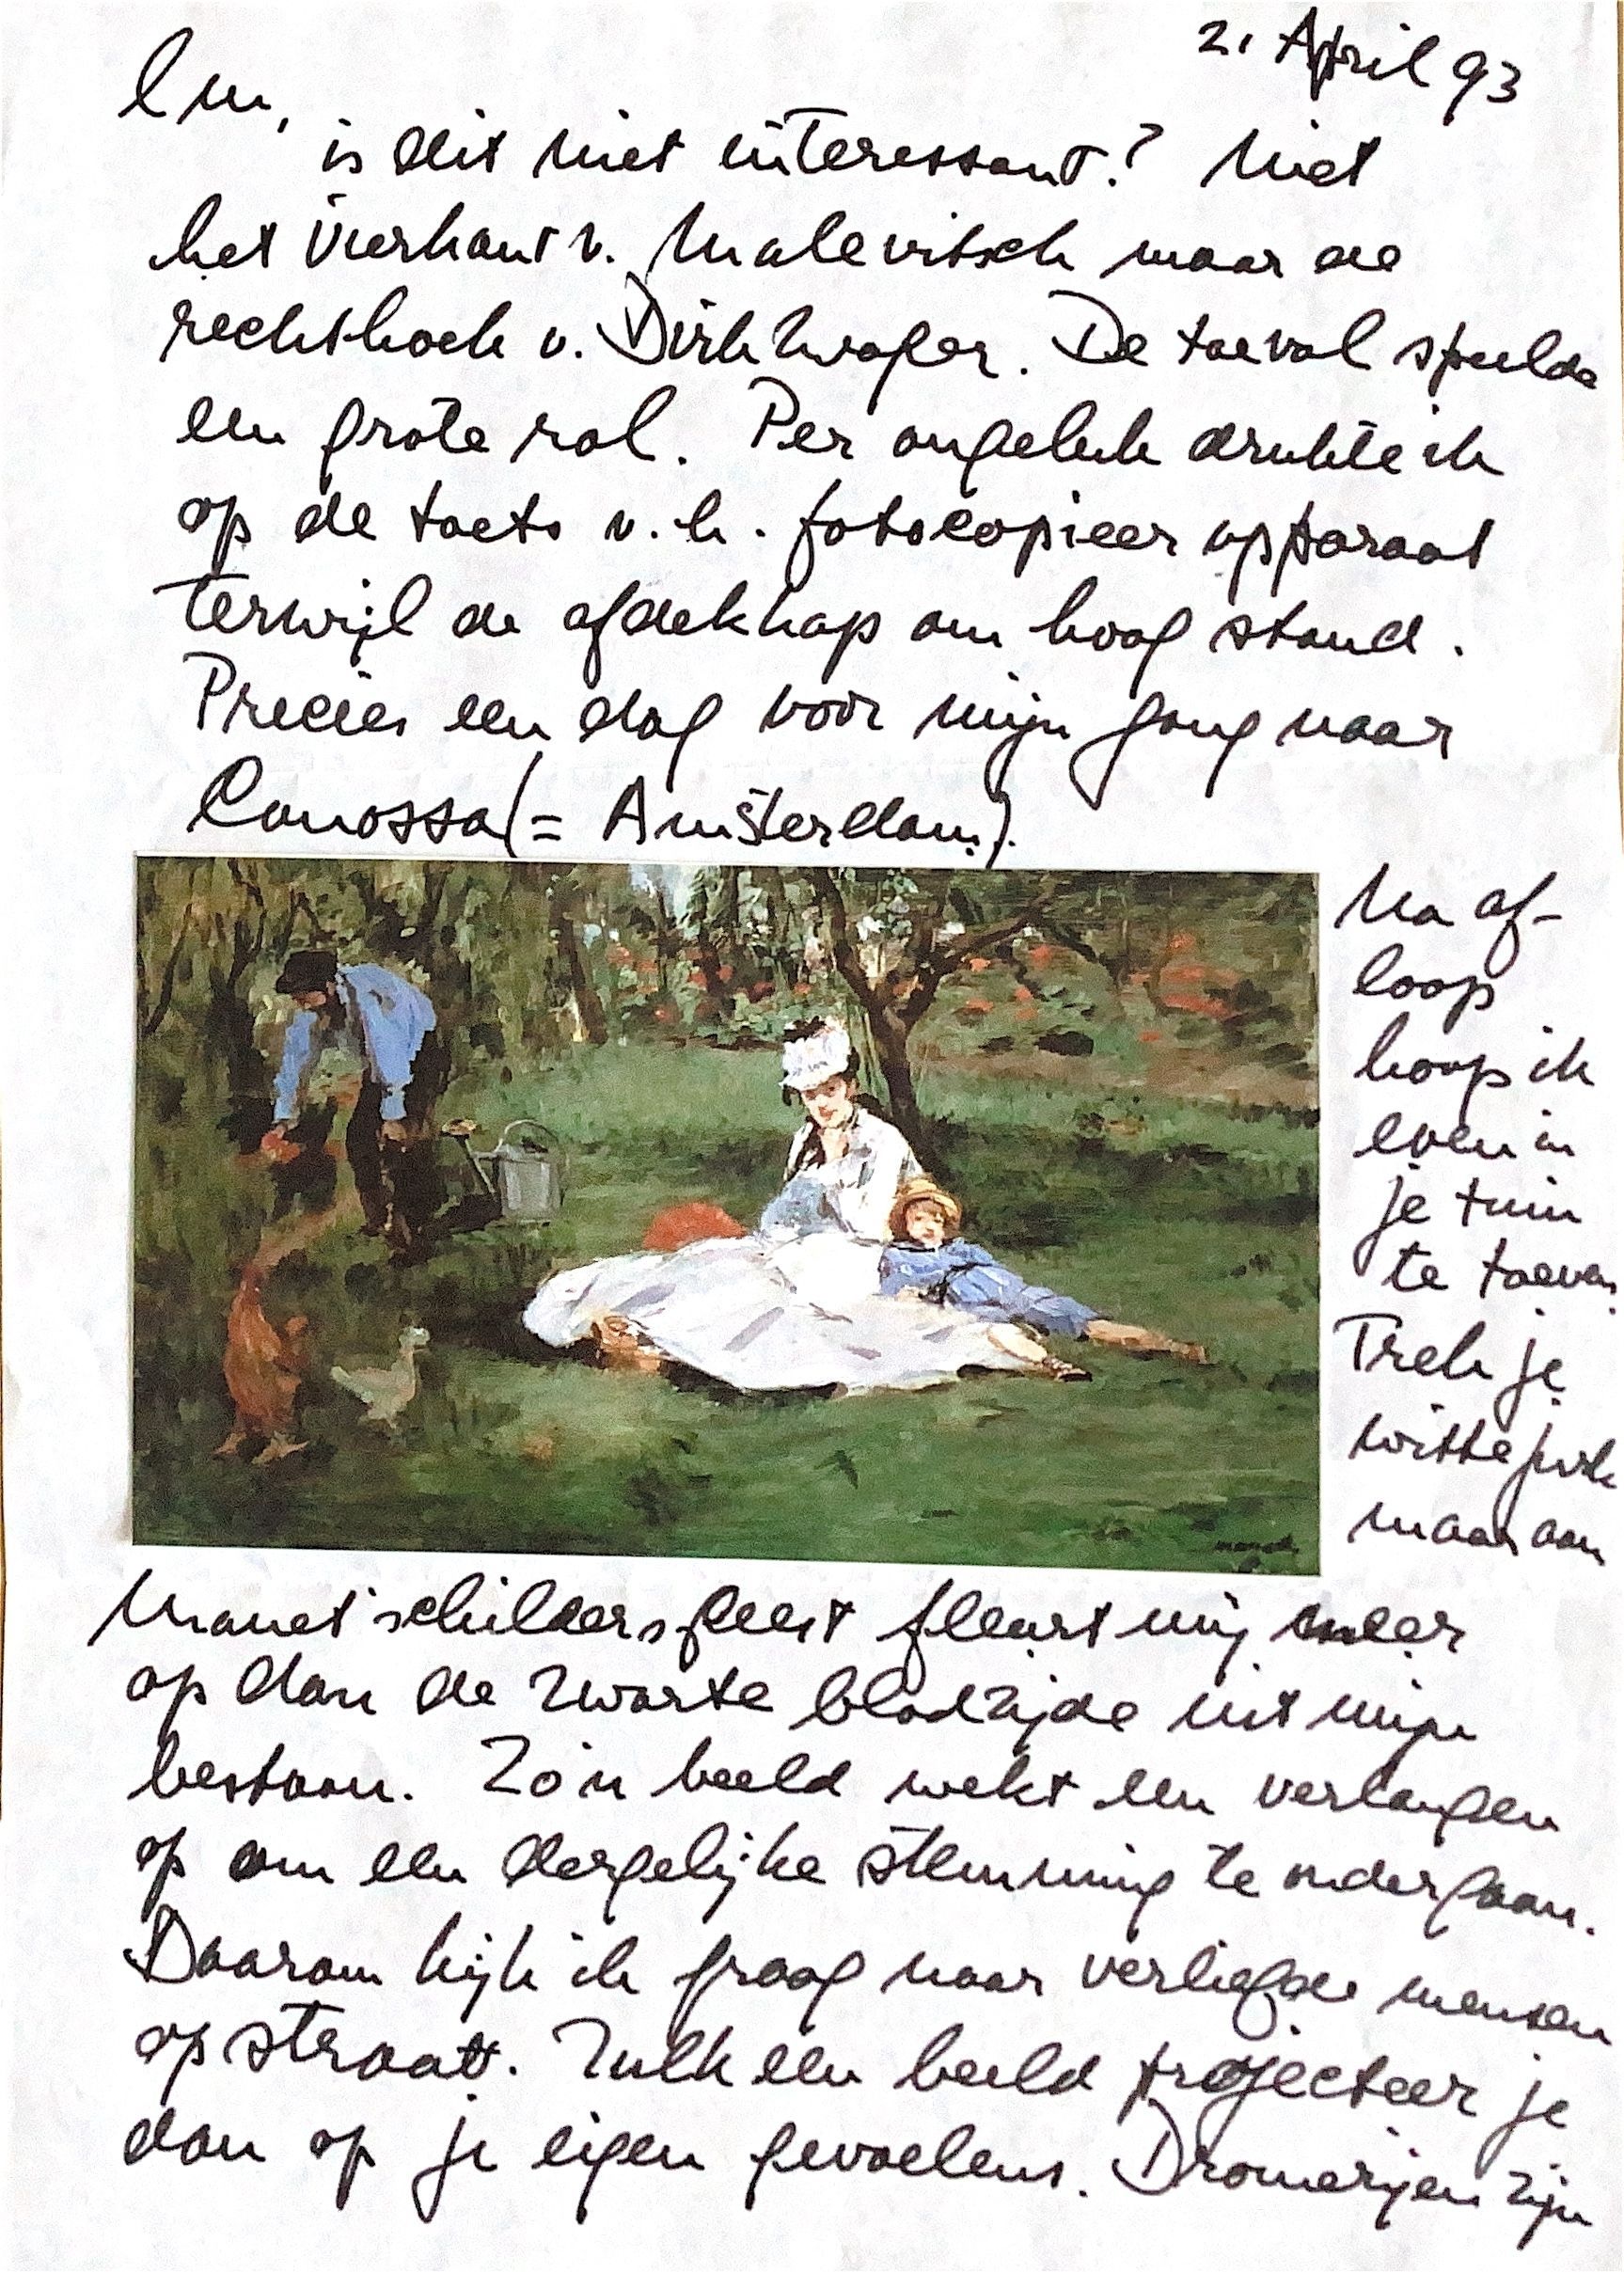 2. April 93
Em,
is dit niet interessant? Niet
het vierkant v. Malevitsch maar de
rechthoek v. Dirkzwager. De toeval speelde
een grote rol. Per ongeluk drukte ik
op de toets v.h. fotocopieer apparaat
terwijl de afdekkap om hoog stond.
Precies een dag voor mijn gang naar
Canossa (= Amsterdam).
Na af-
loop
hoop ik
even in
je tuin
te toeven.
Trek je
witte jurk
maar aan
Manet's schildersfeest fleurt mij meer
op dan de zwarte bladzijde uit mijn
bestaan. Zo'n beeld wekt een verlangen
op om een dergelijke stemming te ondergaan.
Daarom kijk ik graag naar verliefde mensen
op straat. Zulk een beeld projecteer je
dan op je eigen gevoelens. Dromerijen zijn